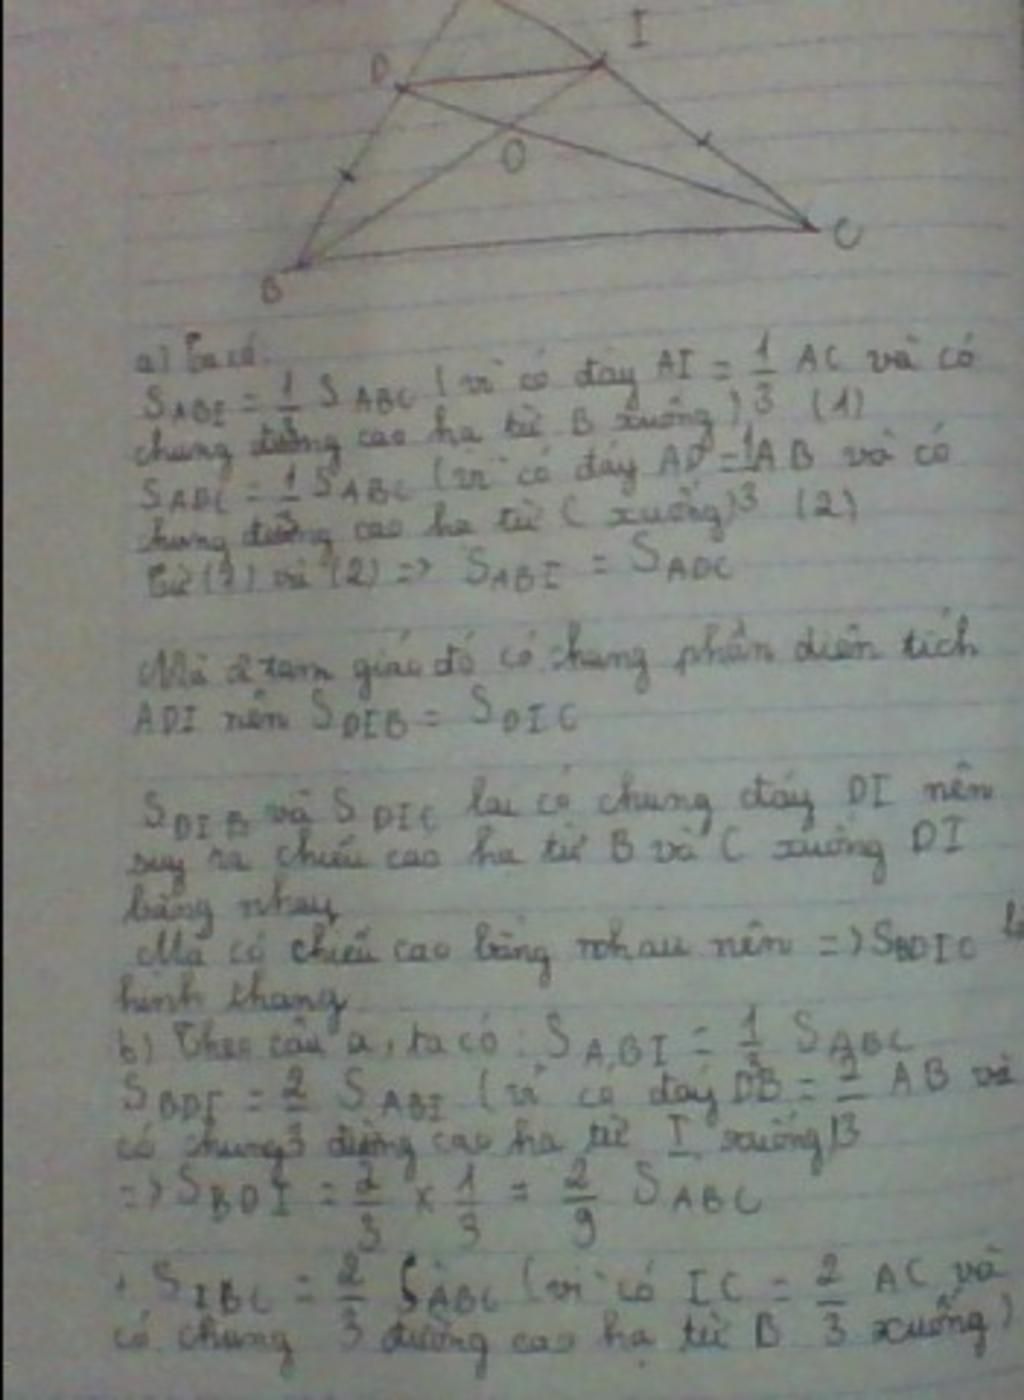 D
I
O
B
C
a) Ta có:
S ABI = 1/3 S ABC (vì có đáy AI = 1/3 AC và có
chung đường cao hạ từ B xuống) (1)
S ADC = 1/3 S ABC (vì có đáy AD = 1/3 AB và có
chung đường cao hạ từ C xuống) (2)
Từ (1) và (2) => S ABI = S ADC
Mà 2 tam giác đó có chung phần diện tích
ADI nên S DIB = S DIC
S DIB và S DIC lại có chung đáy DI nên
suy ra chiều cao hạ từ B và C xuống DI
bằng nhau
Mà có chiều cao bằng nhau nên => S BDIC là
hình thang
b) Theo câu a, ta có: S ABI = 1/3 S ABC
S BDI = 2/3 S ABI (vì có đáy DB = 2/3 AB và
có chung đường cao hạ từ I xuống)
=> S BDI = 2/3 x 1/3 = 2/9 S ABC
S IBC = 2/3 S ABC (vì có IC = 2/3 AC và
có chung đường cao hạ từ B xuống)